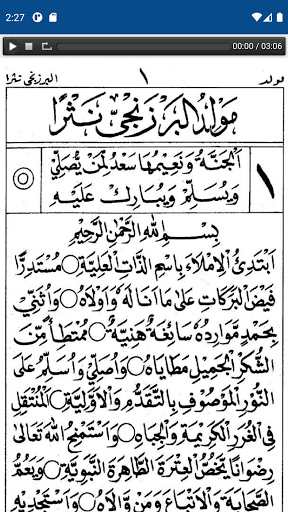 2:27
00:00 / 03:06
مولد ١ البرزنجي نثرا
مَوْلِدُ الْبَرْزَنْجِيْ نَثْرًا
١ اَلْجَنَّةُ وَنَعِيْمُهَا سَعْدٌ لِمَنْ يُصَلِّيْ
وَيُسَلِّمُ وَيُبَارِكُ عَلَيْهِ
بِسْمِ اللهِ الرَّحْمٰنِ الرَّحِيْمِ
اَبْتَدِئُ الْاِمْلَاءَ بِاسْمِ الذَّاتِ الْعَلِيَّةِ ○ مُسْتَدِرًّا
فَيْضَ الْبَرَكَاتِ عَلٰى مَا اَنَالَهُ وَاَوْلَاهُ ○ وَاُثَنِّيْ
بِحَمْدٍ مَوَارِدُهُ سَائِغَةٌ هَنِيَّةٌ ○ مُمْتَطِأً مِنَ
الشُّكْرِ الْجَمِيْلِ مَطَايَاهُ ○ وَاُصَلِّيْ وَاُسَلِّمُ عَلَى
النُّوْرِ الْمَوْصُوْفِ بِالتَّقَدُّمِ وَالْاَوَّلِيَّةِ ○ الْمُنْتَقِلِ
فِي الْغُرَرِ الْكَرِيْمَةِ وَالْجِبَاهِ ○ وَاَسْتَمْنِحُ اللهَ تَعَالٰى
رِضْوَانًا يَخُصُّ الْعِتْرَةَ الطَّاهِرَةَ النَّبَوِيَّةَ ○ وَيَعُمُّ
الصَّحَابَةَ وَالْاَتْبَاعَ وَمَنْ وَّالَاهُ ○ وَاَسْتَجْدِيْهِ